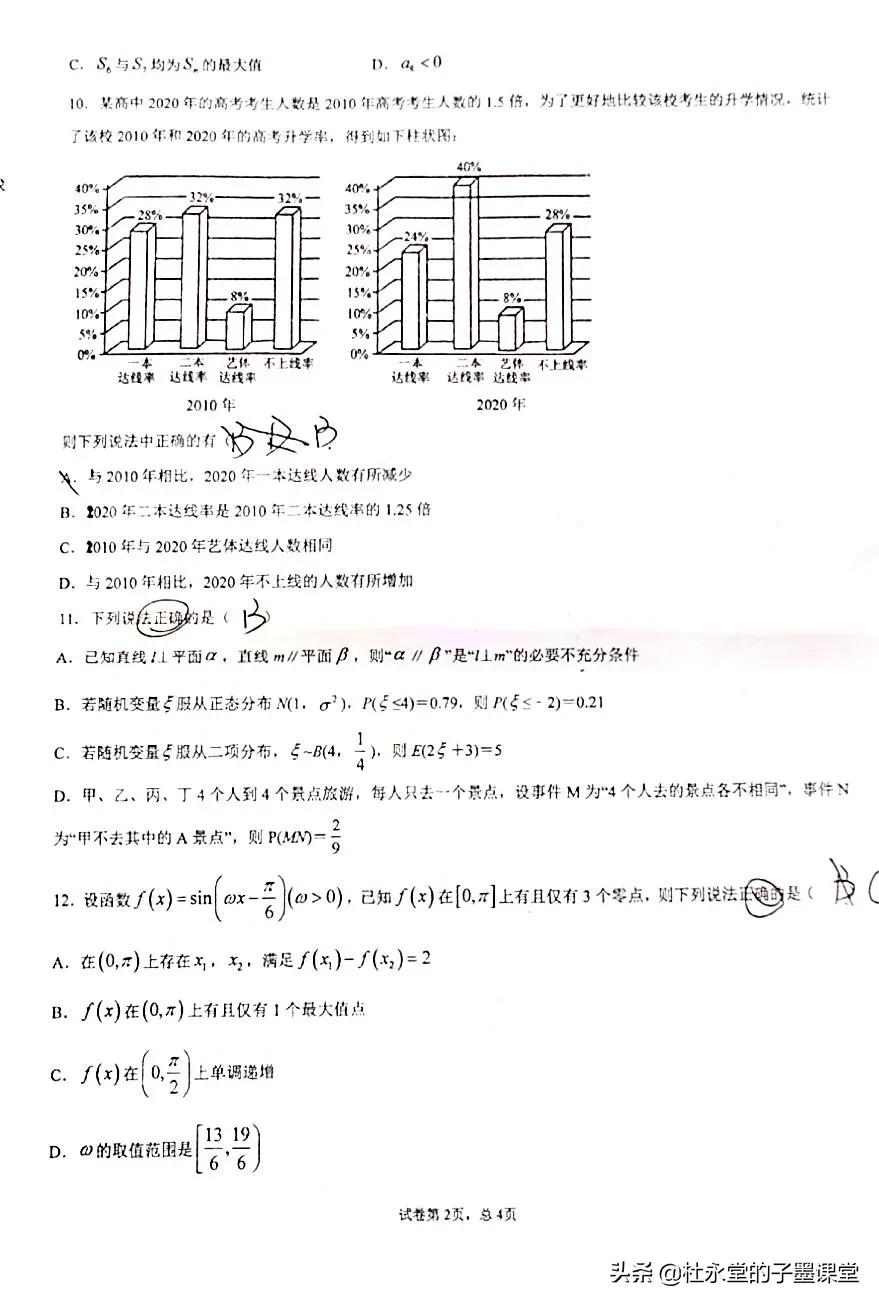 C. S₆与S₇均为Sₙ的最大值 D. a₈ < 0
10. 某高中 2020 年的高考考生人数是 2010 年高考考生人数的 1.5 倍，为了更好地比较该校考生的升学情况，统计
了该校 2010 年和 2020 年的高考升学率，得到如下柱状图：
40%
40% 35% 30% 25% 20% 15% 10% 5% 0%
28% 32% 8% 32%
一本达线率 二本达线率 艺体达线率 不上线率
2010 年
40% 35% 30% 25% 20% 15% 10% 5% 0%
24% 8% 28%
一本达线率 二本达线率 艺体达线率 不上线率
2020 年
则下列说法中正确的有（ B D B
A. 与 2010 年相比，2020 年一本达线人数有所减少
B. 2020 年二本达线率是 2010 年二本达线率的 1.25 倍
C. 2010 年与 2020 年艺体达线人数相同
D. 与 2010 年相比，2020 年不上线的人数有所增加
11. 下列说法正确的是（ B ）
A. 已知直线 l⊥平面α，直线 m∥平面 β，则“α ∥ β”是“l⊥m”的必要不充分条件
B. 若随机变量ξ服从正态分布 N(1，σ²)，P(ξ≤4)=0.79，则 P(ξ≤﹣2)=0.21
C. 若随机变量ξ服从二项分布，ξ~B(4，1/4)，则 E(2ξ+3)=5
D. 甲、乙、丙、丁 4 个人到 4 个景点旅游，每人只去一个景点，设事件 M 为“4 个人去的景点各不相同”，事件 N
为“甲不去其中的 A 景点”，则 P(MN)=2/9
12. 设函数 f(x)=sin(ωx−π/6)(ω>0)，已知 f(x)在[0,π]上有且仅有 3 个零点，则下列说法正确的是（ B
A. 在(0,π)上存在 x₁，x₂，满足 f(x₁)−f(x₂)=2
B. f(x)在(0,π)上有且仅有 1 个最大值点
C. f(x)在(0,π/2)上单调递增
D. ω的取值范围是[13/6,19/6)
试卷第 2页，总 4页
头条 @杜永堂的子墨课堂